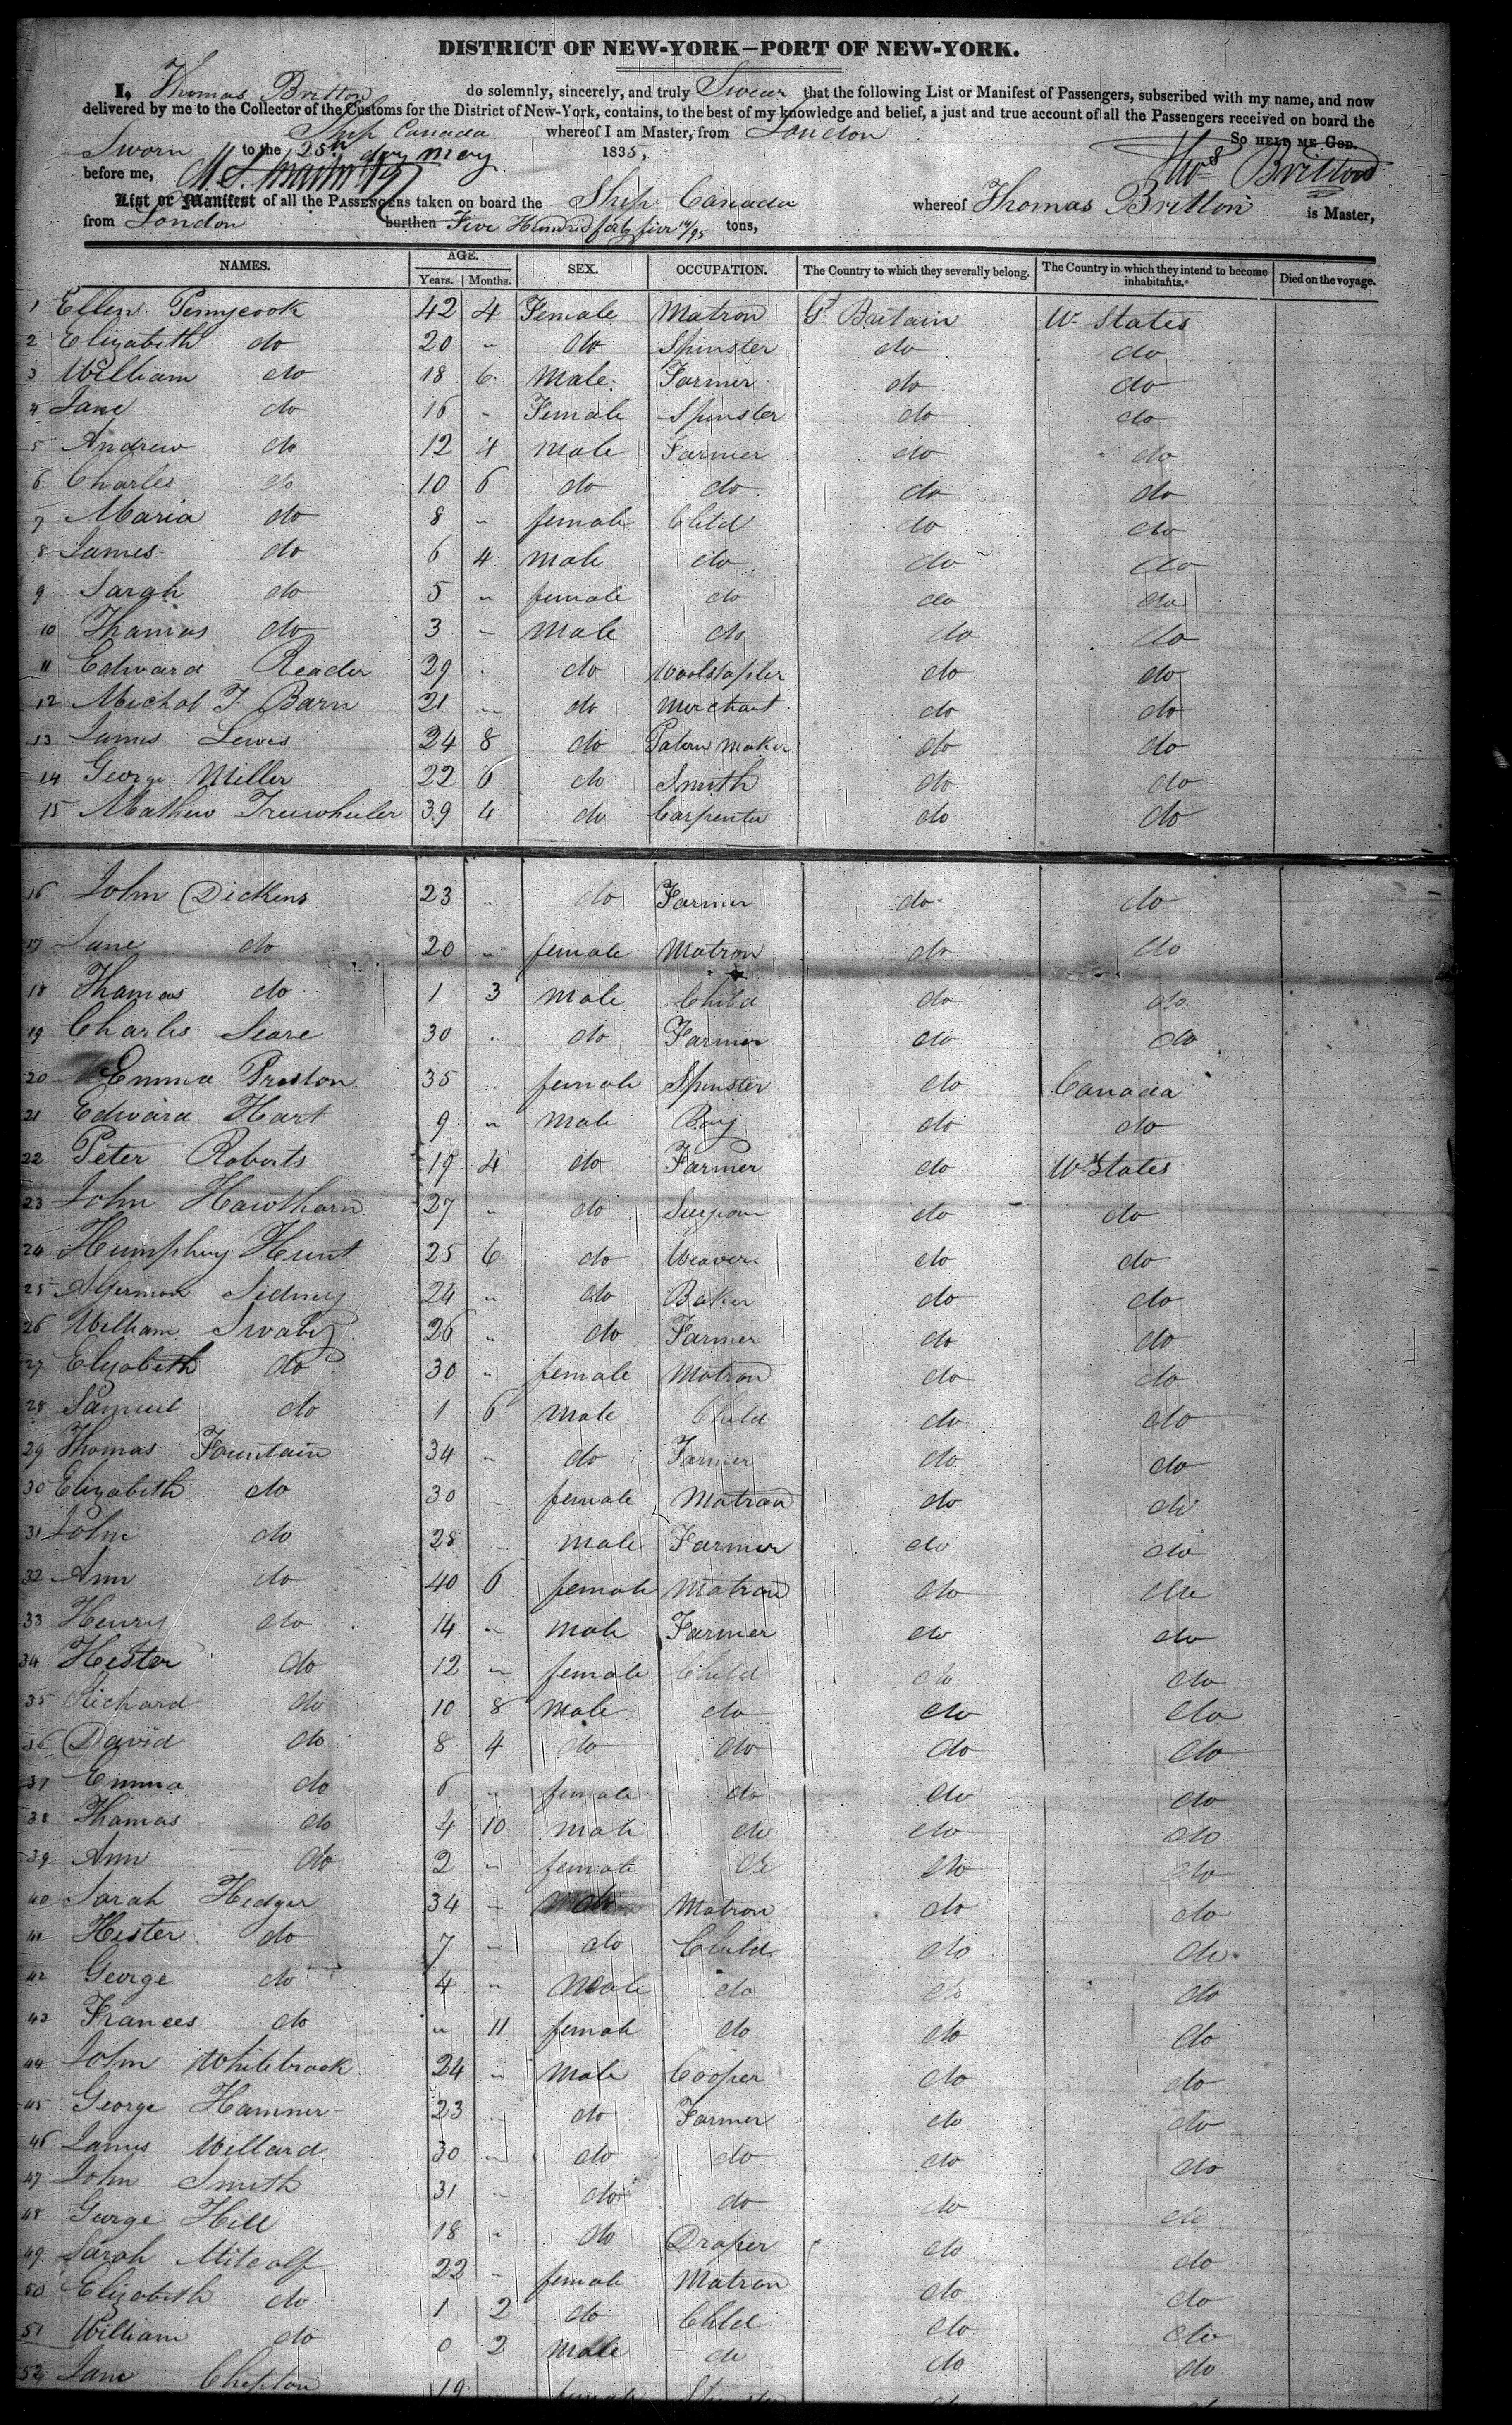 DISTRICT OF NEW-YORK—PORT OF NEW-YORK.
I, Thomas Britton do solemnly, sincerely, and truly Swear that the following List or Manifest of Passengers, subscribed with my name, and now
delivered by me to the Collector of the Customs for the District of New-York, contains, to the best of my knowledge and belief, a just and true account of all the Passengers received on board the
Ship Canada whereof I am Master, from London
So HELP ME GOD.
Sworn to the 25th day May 1835,
Thos Britton
before me,
List or Manifest of all the PASSENGERS taken on board the Ship Canada whereof Thomas Britton is Master,
from London burthen Five Hundred forty five tons,
NAMES. AGE. SEX. OCCUPATION. The Country to which they severally belong. The Country in which they intend to become inhabitants.* Died on the voyage.
Years. Months.
1 Ellen Pennycook 42 4 Female Matron Gt Britain Ud States
2 Elizabeth do 20 " do Spinster do do
3 William do 18 6 Male Farmer do do
4 Jane do 16 " Female Spinster do do
5 Andrew do 12 4 male Farmer do do
6 Charles do 10 6 do do do do
7 Maria do 8 " female Child do do
8 James do 6 4 male do do do
9 Sarah do 5 " female do do do
10 Thomas do 3 " Male do do do
11 Edward Reader 29 " do Woolstapler do do
12 Michal T Barn 21 " do Merchant do do
13 James Lewis 24 8 do Patern maker do do
14 George Miller 22 6 do Smith do do
15 Mathew Truwheeler 39 4 do Carpenter do do
16 John Dickens 23 " do Farmer do do
17 Jane do 20 " female Matron do do
18 Thomas do 1 3 male Child do do
19 Charles Seare 30 " do Farmer do do
20 Emma Preston 35 " female Spinster do Canada
21 Edward Hart 9 " male Boy do do
22 Peter Roberts 19 4 do Farmer do Ud States
23 John Hawthorn 27 " do Surgeon do do
24 Humphrey Hunt 25 6 do Weaver do do
25 Algernon Sidney 24 " do Baker do do
26 William Swaby 26 " do Farmer do do
27 Elizabeth do 30 " female Matron do do
28 Samuel do 1 6 male Child do do
29 Thomas Fountain 34 " do Farmer do do
30 Elizabeth do 30 " female Matron do do
31 John do 28 " male Farmer do do
32 Ann do 40 6 female Matron do do
33 Henry do 14 " male Farmer do do
34 Hester do 12 " female Child do do
35 Richard do 10 8 male do do do
36 David do 8 4 do do do do
37 Emma do 6 " female do do do
38 Thomas do 4 10 male do do do
39 Ann do 2 " female do do do
40 Sarah Hedger 34 " Matron do do
41 Hester do 7 " do Child do do
42 George do 4 " Male do do do
43 Frances do " 11 female do do do
44 John Whitebrook 24 " male Cooper do do
45 George Hamner 23 " do Farmer do do
46 James Willard 30 " do do do do
47 John Smith 31 " do do do do
48 George Hill 18 " do Draper do do
49 Sarah Mitcalf 22 " female Matron do do
50 Elizabeth do 1 2 do Child do do
51 William do 0 2 male do do do
52 Jane 19 female Spinster do do